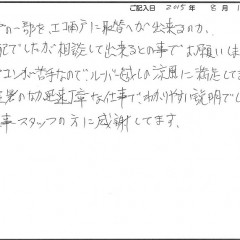 ご記入日 2015年 8月 1
の一部を、エコ雨戸に取替へが出来るのか、
配でしたが相談して出来るとの事でお願いしま
コンが苦手なので、ルーバー越しの涼風に満足してま
者の方迅速丁寧な仕事で、わかりやすい説明でし
事スタッフの方に感謝してます。